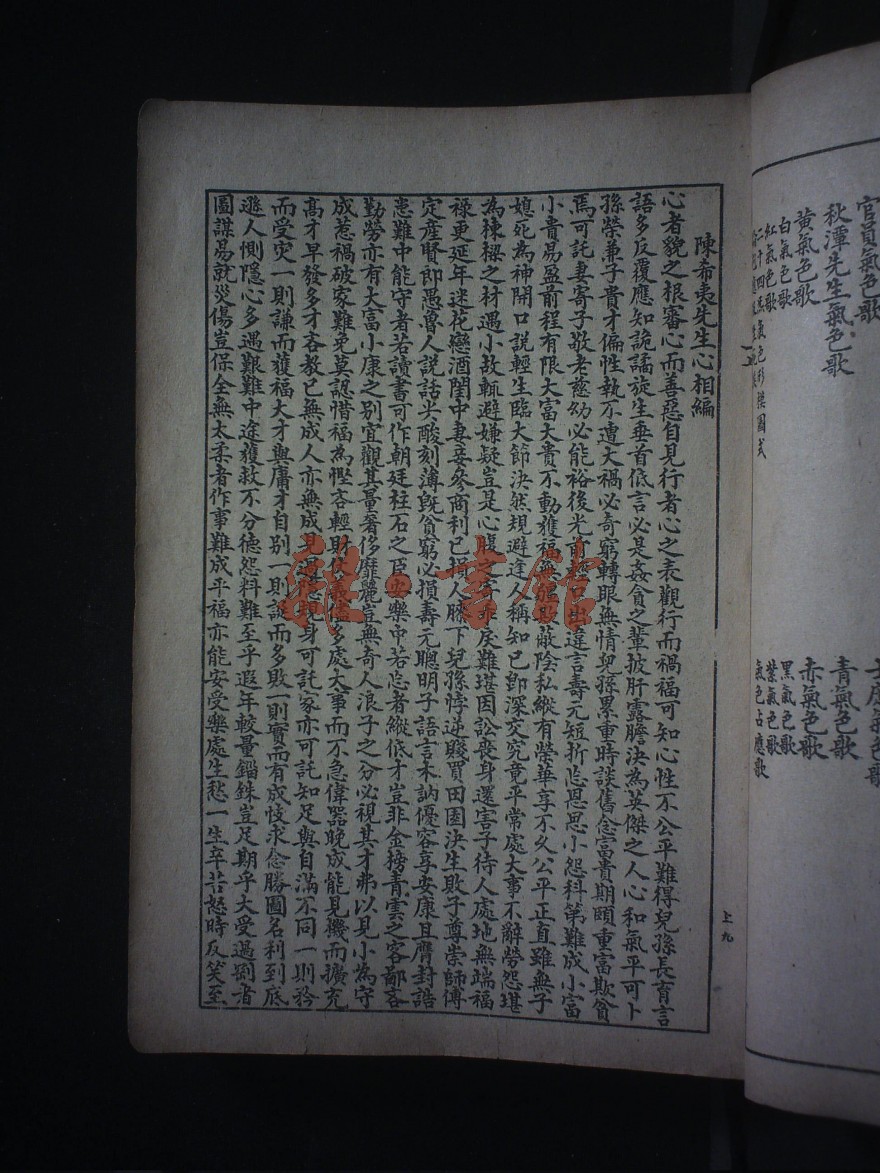 官員氣色歌
秋潭先生氣色歌
黃氣色歌
白氣色歌
紅氣色歌
青氣色歌
赤氣色歌
黑氣色歌
紫氣色歌
氣色占應歌
陳希夷先生心相編
心者貌之根審心而善惡自見行者心之表觀行而禍福可知心性不公平難得兒孫長育言
語多反覆應知詭譎旋生垂首低言必是姦貪之輩披肝露膽決為英傑之人心和氣平可卜
孫榮兼子貴才偏性執不遭大禍必奇窮轉眼無情兒孫累重時談舊念富貴期頤重富欺貧
焉可託妻寄子敬老慈幼必能裕後光前輕口出違言壽元短折忘恩思小怨科第難成小富
小貴易盈前程有限大富大貴不動獲福無疆欺蔽陰私縱有榮華享不久公平正直雖無子
媳死為神開口說輕生臨大節決然規避逢人稱知己即深交究竟平常處大事不辭勞怨堪
為棟樑之材遇小故輒避嫌疑豈是心腹之寄奇戾難堪因訟喪身還害子待人處地無端福
祿更延年迷花戀酒閨中妻妾參商利己損人膝下兒孫悖逆賤買田園決生敗子尊崇師傅
定產賢郎愚魯人說話尖酸刻薄既貧窮必損壽元聰明子語言木訥優容享安康且膺封誥
患難中能守者若讀書可作朝廷柱石之臣安樂中若忘者縱低才豈非金榜青雲之客鄙吝
勤勞亦有大富小康之別宜觀其量奢侈靡麗豈無奇人浪子之分必視其才弗以見小為守
成惹禍破家難免莫認惜福為慳吝輕財仗義儘多處大事而不急偉器晚成能見機而擴充
高才早發多才吝教已無成人亦無成見過隱規身可託家亦可託知足與自滿不同一則矜
而受災一則謙而獲福大才與庸才自別一則誕而多敗一則實而有成忮求念勝圖名利到底
遜人惻隱心多遇艱難中途獲救不分德怨料難至乎遐年較量錙銖豈足期乎大受過剛者
圖謀易就災傷豈保全無太柔者作事難成平福亦能安受樂處生愁一生辛苦怒時反笑至
上九
雜·書館